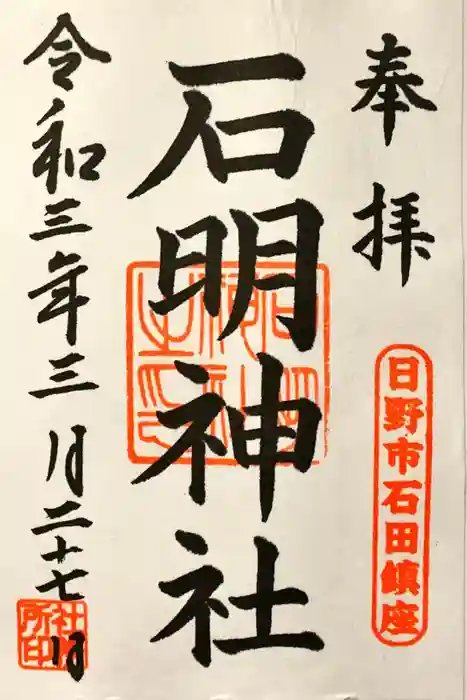 奉拝
日野市石田鎮座
石明神社
令和三年三月二十七日
社務所印